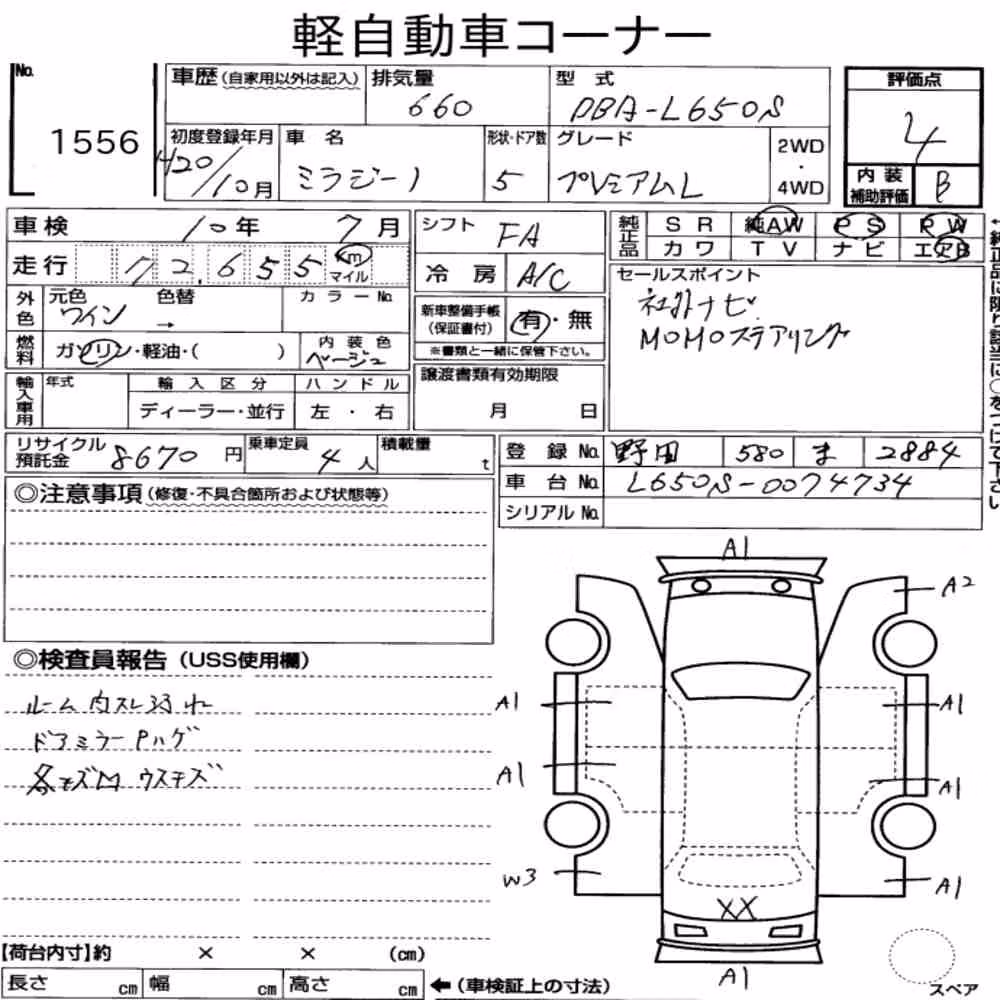 軽自動車コーナー
No. 1556
車歴(自家用以外は記入) 排気量 660 型式 DBA-L650S
評価点 4
初度登録年月 H20/10月 車名 ミラジーノ 形状・ドア数 5 グレード プレミアムL 2WD・4WD
内装補助評価 B
車検 10年7月 シフト FA 純正品 SR 純AW PS PW
カワ TV ナビ エアB
走行 72,655 km マイル 冷房 A/C
セールスポイント
社外ナビ
MOMOステアリング
外色 元色 ワイン 色替 → カラーNo.
新車整備手帳(保証書付) 有・無
※書類と一緒に保管下さい。
燃料 ガソリン・軽油・( ) 内装色 ベージュ
輸入車用 年式 輸入区分 ハンドル
ディーラー・並行 左・右
譲渡書類有効期限
月 日
リサイクル預託金 8670円 乗車定員 4人 積載量 t
登録No. 野田 580 ま 2884
車台No. L650S-0074734
シリアルNo.
◎注意事項(修復・不具合箇所および状態等)
◎検査員報告(USS使用欄)
ルーム内スレヨゴレ
ドアミラーPハゲ
各キズM ウスキズ
A1
A2
A1 A1
A1 A1
W3 A1
XX
A1
スペア
【荷台内寸】約 × × (cm)
長さ cm 幅 cm 高さ cm ←(車検証上の寸法)